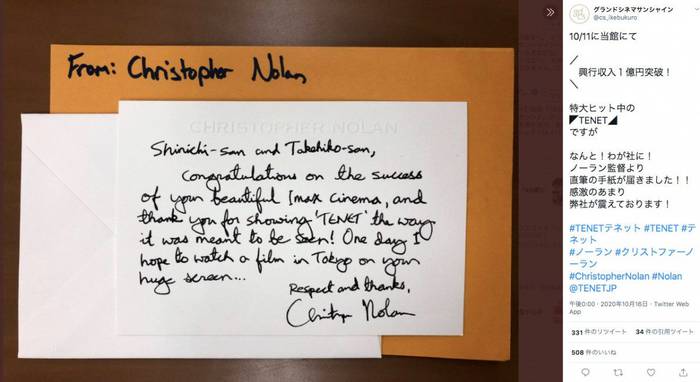 From: Christopher Nolan
CHRISTOPHER NOLAN
Shinichi-san and Takehiko-san,
Congratulations on the success
of your beautiful Imax cinema, and
thank you for showing 'TENET' the way
it was meant to be seen! One day I
hope to watch a film in Tokyo on your
huge screen...
Respect and thanks,
Christopher Nolan
グランドシネマサンシャイン
@cs_ikebukuro
10/11に当館にて
／
興行収入１億円突破！
＼
特大ヒット中の
◤TENET◢
ですが
なんと！わが社に！
ノーラン監督より
直筆の手紙が届きました！！
感激のあまり
弊社が震えております！
#TENETテネット #TENET #テ
ネット
#ノーラン #クリストファーノ
ーラン
#ChristopherNolan #Nolan
@TENETJP
午後0:00 · 2020年10月16日 · Twitter Web
App
331 件のリツイート 34 件の引用ツイート
508 件のいいね